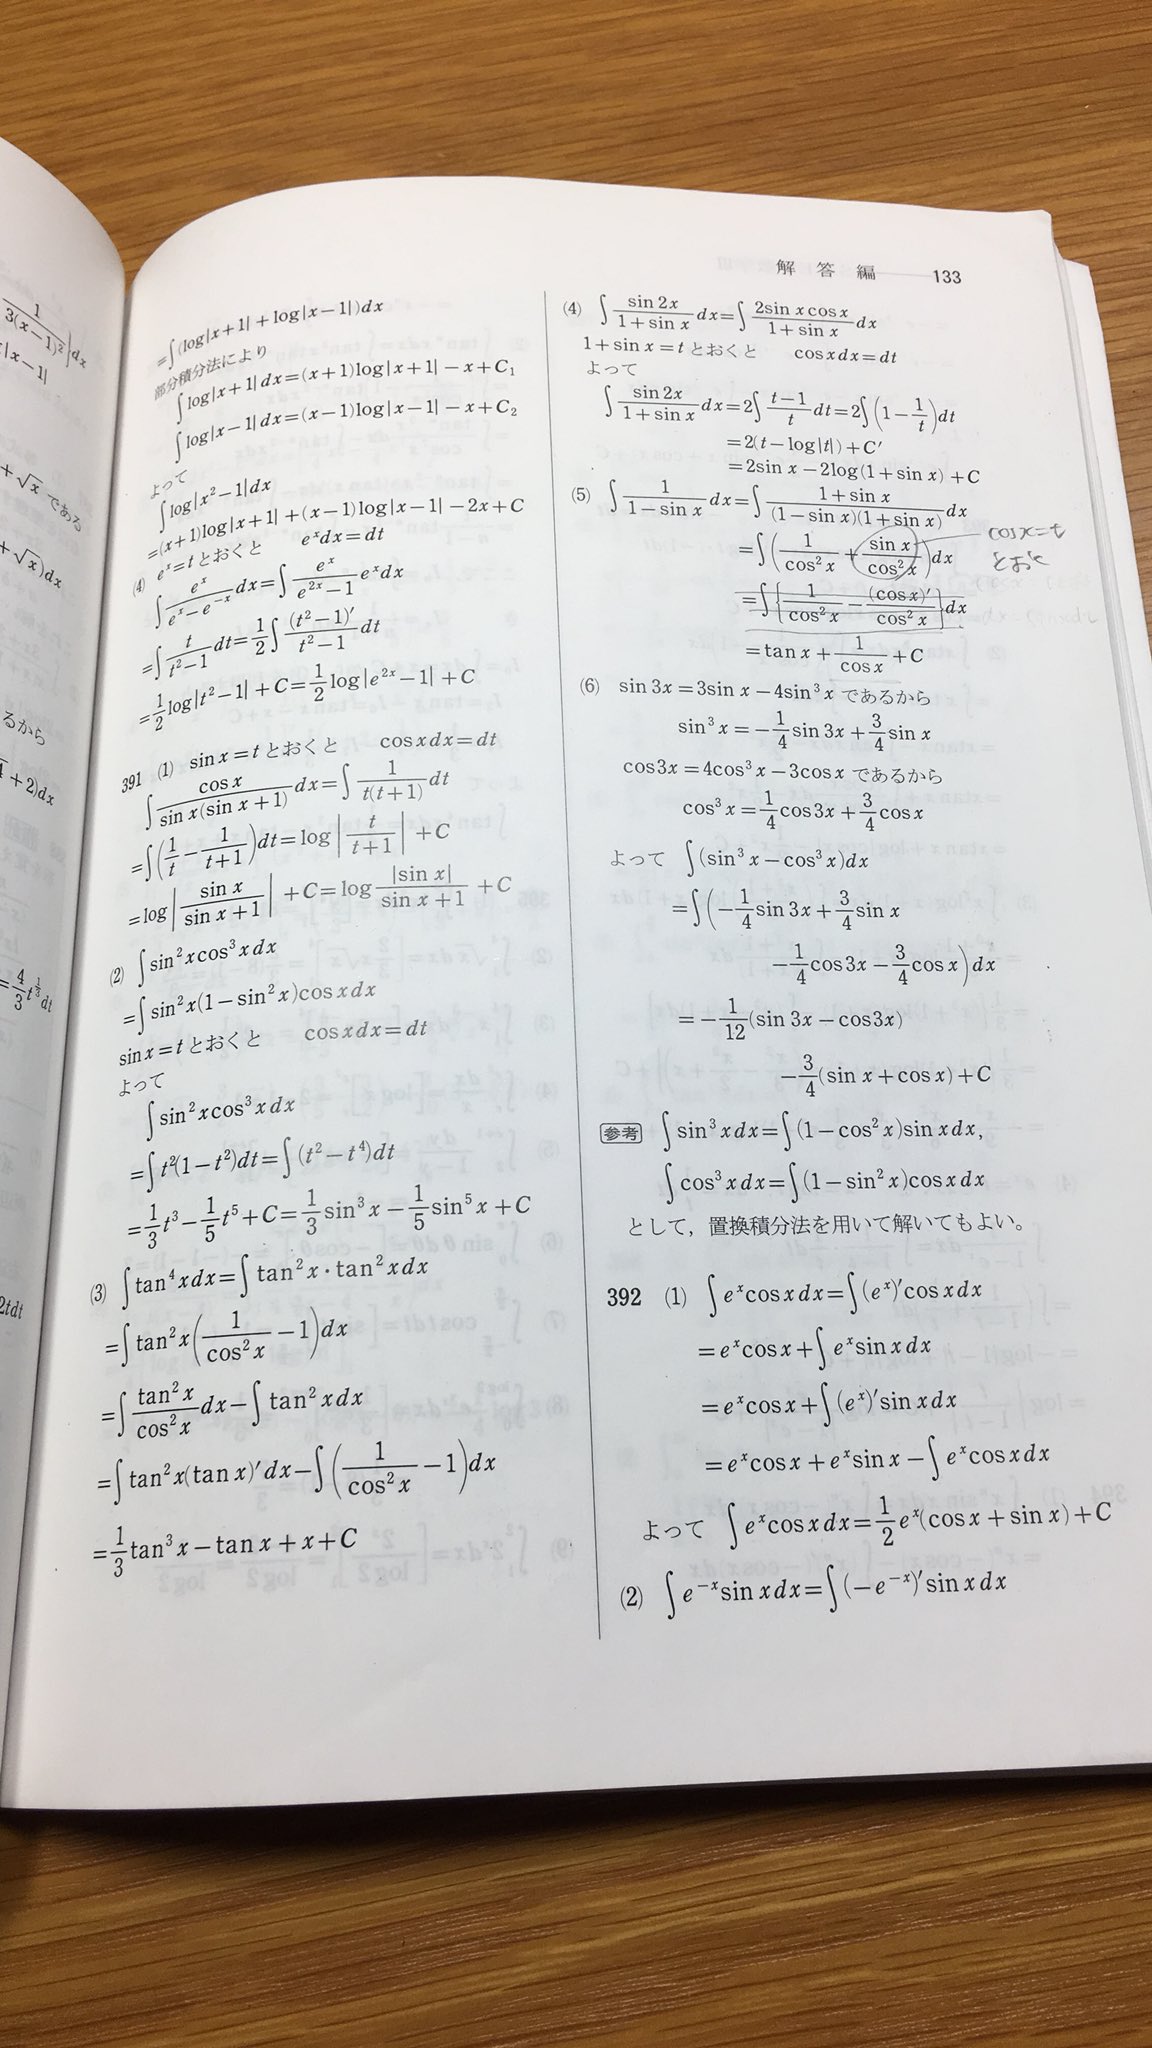 解答編 133
=∫(log|x+1|+log|x-1|)dx
部分積分法により
∫log|x+1|dx=(x+1)log|x+1|-x+C₁
∫log|x-1|dx=(x-1)log|x-1|-x+C₂
よって
∫log|x²-1|dx
=(x+1)log|x+1|+(x-1)log|x-1|-2x+C
(4) eˣ=tとおくと eˣdx=dt
∫eˣ/(eˣ-e⁻ˣ)dx=∫eˣ/(e²ˣ-1)eˣdx
=∫t/(t²-1)dt=1/2∫(t²-1)′/(t²-1)dt
=1/2log|t²-1|+C=1/2log|e²ˣ-1|+C
391 (1) sin x=tとおくと cos x dx=dt
∫cos x/(sin x(sin x+1))dx=∫1/(t(t+1))dt
=∫(1/t-1/(t+1))dt=log|t/(t+1)|+C
=log|sin x/(sin x+1)|+C=log |sin x|/(sin x+1)+C
(2) ∫sin²x cos³x dx
=∫sin²x(1-sin²x)cos x dx
sin x=tとおくと cos x dx=dt
よって
∫sin²x cos³x dx
=∫t²(1-t²)dt=∫(t²-t⁴)dt
=1/3t³-1/5t⁵+C=1/3sin³x-1/5sin⁵x+C
(3) ∫tan⁴x dx=∫tan²x·tan²x dx
=∫tan²x(1/cos²x-1)dx
=∫tan²x/cos²x dx-∫tan²x dx
=∫tan²x(tan x)′dx-∫(1/cos²x-1)dx
=1/3tan³x-tan x+x+C
(4) ∫sin 2x/(1+sin x)dx=∫2sin x cos x/(1+sin x)dx
1+sin x=tとおくと cos x dx=dt
よって
∫sin 2x/(1+sin x)dx=2∫(t-1)/t dt=2∫(1-1/t)dt
=2(t-log|t|)+C′
=2sin x-2log(1+sin x)+C
(5) ∫1/(1-sin x)dx=∫(1+sin x)/((1-sin x)(1+sin x))dx
=∫(1/cos²x+sin x/cos²x)dx
cos x=t
とおく
=∫{1/cos²x-(cos x)′/cos²x}dx
=tan x+1/cos x+C
(6) sin 3x=3sin x-4sin³x であるから
sin³x=-1/4sin 3x+3/4sin x
cos3x=4cos³x-3cos x であるから
cos³x=1/4cos3x+3/4cos x
よって ∫(sin³x-cos³x)dx
=∫(-1/4sin 3x+3/4sin x
-1/4cos3x-3/4cos x)dx
=-1/12(sin 3x-cos3x)
-3/4(sin x+cos x)+C
参考 ∫sin³x dx=∫(1-cos²x)sin x dx,
∫cos³x dx=∫(1-sin²x)cos x dx
として，置換積分法を用いて解いてもよい。
392 (1) ∫eˣcos x dx=∫(eˣ)′cos x dx
=eˣcos x+∫eˣsin x dx
=eˣcos x+∫(eˣ)′sin x dx
=eˣcos x+eˣsin x-∫eˣcos x dx
よって ∫eˣcos x dx=1/2eˣ(cos x+sin x)+C
(2) ∫e⁻ˣsin x dx=∫(-e⁻ˣ)′sin x dx